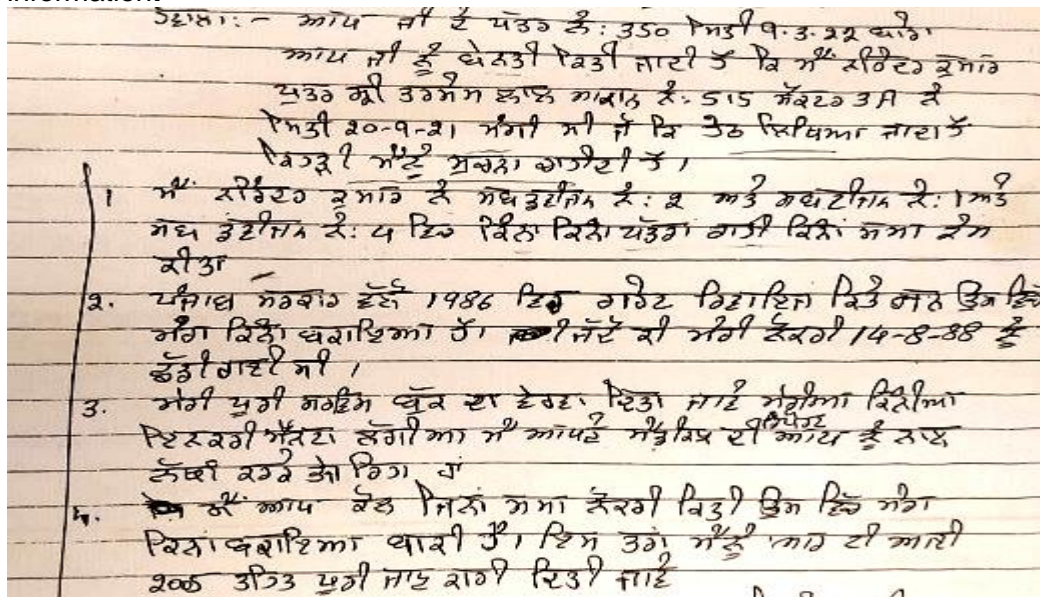 ਹਵਾਲਾ:- ਆਪ ਜੀ ਦੇ ਪੱਤਰ ਨੰ: 350 ਮਿਤੀ 9.3.22 ਬਾਰੇ
ਆਪ ਜੀ ਨੂੰ ਬੇਨਤੀ ਕਿਤੀ ਜਾਂਦੀ ਹੈ ਕਿ ਮੈਂ ਨਰਿੰਦਰ ਕੁਮਾਰ
ਪੁਤਰ ਸ੍ਰੀ ਤਰਸੇਮ ਲਾਲ ਮਕਾਨ ਨੰ: 515 ਸੈਕਟਰ 3A ਨੇ
ਮਿਤੀ 20-9-21 ਮੰਗੀ ਸੀ ਜੋ ਕਿ ਹੇਠ ਲਿਖਿਆ ਜਾਂਦਾ ਹੈ
ਕਿਹੜੀ ਮੈਨੂੰ ਸੂਚਨਾ ਚਾਹੀਦੀ ਹੈ।
1 ਮੈਂ ਨਰਿੰਦਰ ਕੁਮਾਰ ਨੇ ਸਬ ਡਵੀਜਨ ਨੰ: 2 ਅਤੇ ਸਬ ਡਵੀਜਨ ਨੰ: 1 ਅਤੇ
ਸਬ ਡਵੀਜਨ ਨੰ: 4 ਵਿਚ ਕਿੰਨਾ ਕਿੰਨਾ ਕਿੰਨਾ ਸਮਾ ਕੰਮ
ਕੀਤਾ
2. ਪੰਜਾਬ ਸਰਕਾਰ ਵੱਲੋਂ 1986 ਵਿਚ ਗਰੇਟ ਰਿਵਾਇਜ ਕਿਤੇ ਸਨ ਉਸ ਵਿਚੋਂ
ਮੇਰਾ ਕਿੰਨਾ ਬਕਾਇਆ ਹੈ। ਜਦੋਂ ਕੀ ਮੇਰੀ ਨੌਕਰੀ 14-8-88 ਨੂੰ
ਛੱਡੀ ਗਈ ਸੀ।
3. ਮੇਰੀ ਪੂਰੀ ਸਰਵਿਸ ਬੁੱਕ ਦਾ ਵੇਰਵਾ ਦਿਤਾ ਜਾਵੇ ਮੇਰੀਆ ਕਿੰਨੀਆ
ਇਨਕਰੀਮੈਂਟਾ ਲੱਗੀਆ ਮੈਂ ਆਪਣੇ ਦੀ ਰਿਪੋਟ ਆਪ ਨੂੰ ਨਾਲ
ਨੱਥੀ ਕਰਕੇ ਭੇਜ ਰਿਹਾ ਹਾਂ
4. ਮੈਂ ਆਪ ਕੋਲ ਜਿੰਨਾ ਸਮਾ ਨੌਕਰੀ ਕਿਤੀ ਉਸ ਵਿਚੋ ਮੇਰਾ
ਕਿੰਨਾ ਬਕਾਇਆ ਬਾਕੀ ਹੈ। ਇਸ ਤਰਾਂ ਮੈਨੂੰ ਆਰ ਟੀ ਆਈ
2005 ਤਹਿਤ ਪੂਰੀ ਜਾਣਕਾਰੀ ਦਿਤੀ ਜਾਵੇ